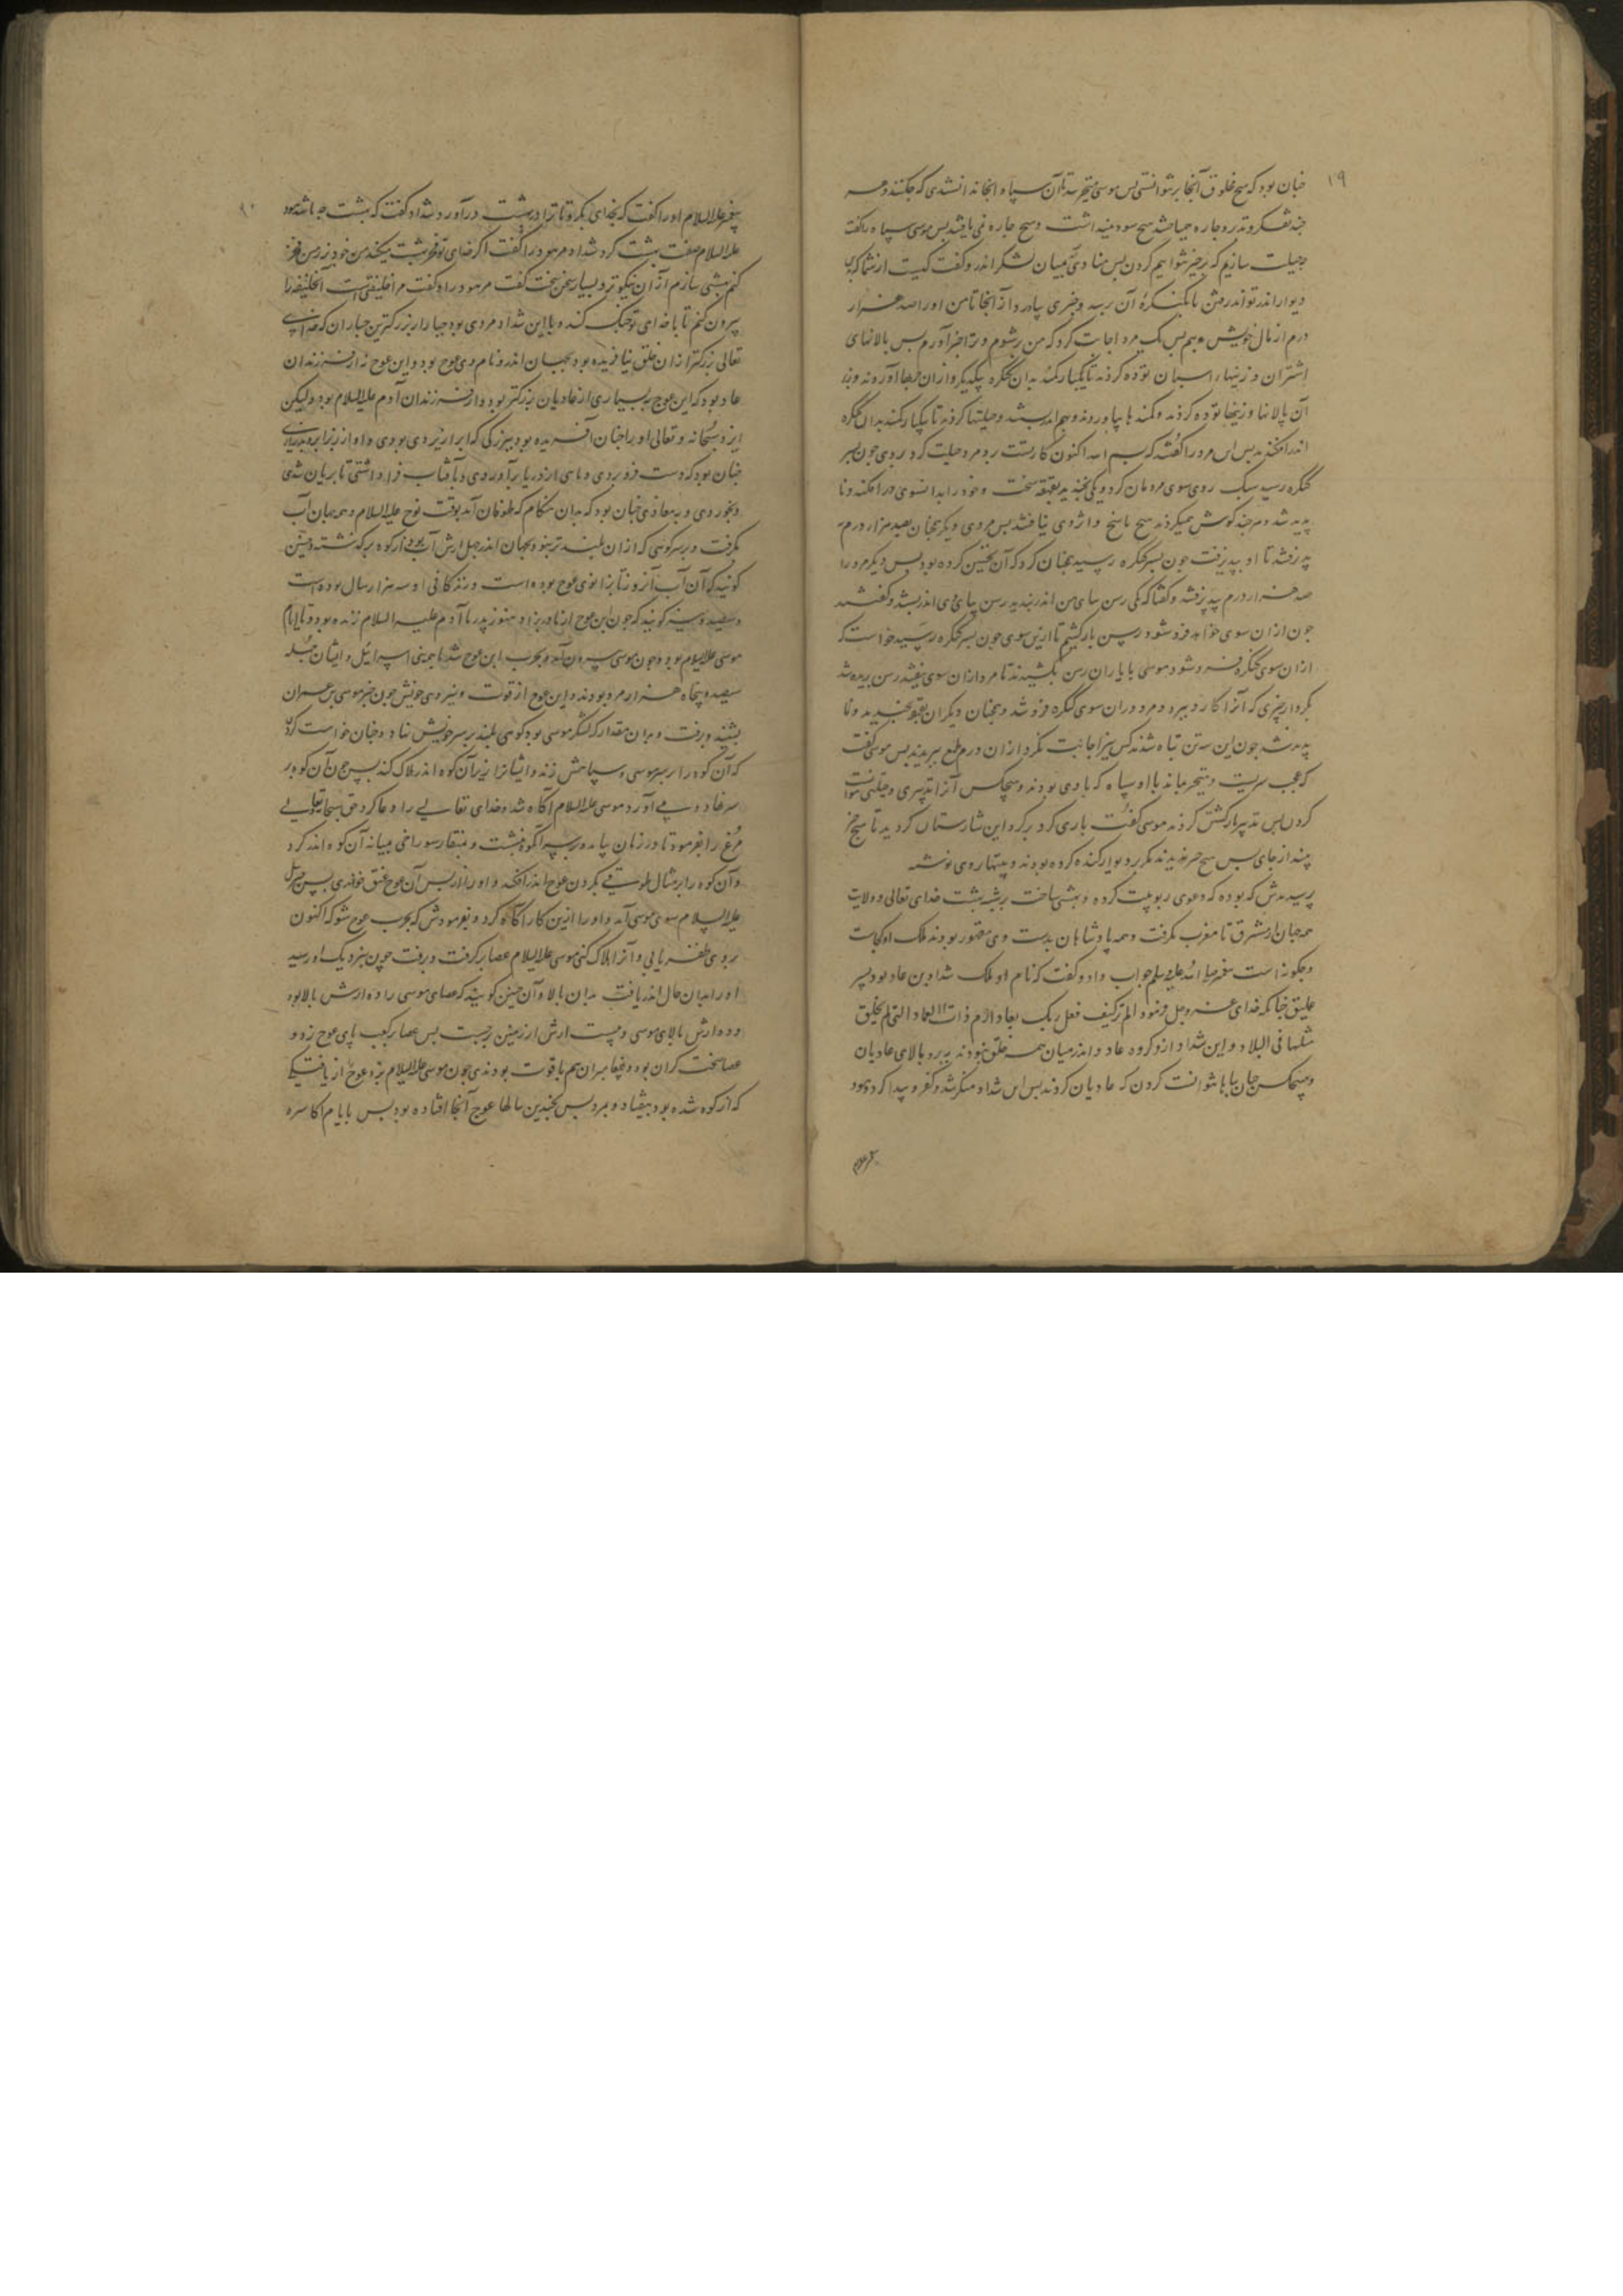 ۱۹
جنان بود که هیچ مخلوق آنجا برنتوانستی پس موسی متحیر شد با آن سپاه آنجا ندانستندی که چکنند و هر
جند تفکر و تدبر و جاره میساختند هیچ سود نمیداشت و هیچ جاره نمی یافتند پس موسی سپاه را گفت
چه حیلت سازیم که برخبر شوایم کردن پس منادی میان لشکر اندر و گفت کیست از شما که برین
دیوار اندر تواند رفتن تا بکنگره آن رسد و خبری بیاورد از آنجا تا من او را صد هزار
درم از مال خویش بدهم پس یک مرد اجابت کرد که من برشوم و ترا خبر آورم پس بالانهای
اشتران و زینهاء اسبان توده کردند تا یکبار کمند بدان کنگره
آن پالانها و زینها توده کردند و کمندها بیاوردند و بهم اندر بستند و حیلتها کردند تا یکبار کمند بدان کنگره
اندر افکندند پس این مرد را گفتند که بسم الله اکنون کار تست رو مرد حیلت کرد روی جون بسر
کنگره رسید سبک روی سوی مردمان کرد و یکی بخندید بقهقهه سخت و خود را بدانسوی در افکند و نا
پدید شد هر چند گوش میکردند هیچ پاسخ و آواز وی نیافتند پس مردی دیگر همجنان بصد هزار درم
پذیرفتند تا او بپذیرفت جون بسر کنگره رسید همجنان کرد که آن نخستین کرده بود پس دیگر مرد را
صد هزار درم پذیرفتند و گفتا که یکی رسن بپای من اندر بندید رسن بپای وی اندر بستند و گفتند
جون از ان سوی خواهد فرو شود رسن بازکشیم تا ازین سوی جون بسر کنگره رسید خواست که
ازان سوی کنگره فرو شود موسی با یاران رسن بکشیدند تا مرد ازان سوی نیفتد رسن بریده شد
بکردار چیزی که آنرا کارد ببرد و مرد بدان سوی کنگره فرو شد و همجنان دیگران بقهقهه بخندید و نا
پدید شد جون این سه تن تباه شدند کس نیز اجابت نکرد از ان درم طمع ببریدند پس موسی گفت
که عجب سریست و متحیر ماند با او سپاه که با وی بودند و هیچکس آنرا تدبیری و حیلتی نتوانست
کردن پس تدبیر بازگشتن کردند موسی گفت باری کرد بر گرد این شارستان کردید تا هیچ خبر
پیند از جای پس هیچ خبر ندیدند مگر بر دیوار کنده کرده بودند و بیتها بروی نوشته
پرسیدش که بوده که دعوی ربوبیت کرده و بهشتی ساخت برشبه بهشت خدای تعالی و ولایت
همه جهان از مشرق تا مغرب بگرفت و همه پادشاهان بدست وی مقهور بودند ملک او کجاست
و چگونه است پیغمبر صلی الله علیه و سلم جواب داد و گفت که نام او ملک شداد بن عاد بود پسر
عملیق جنانکه خدای عز و جل فرمود الم تر کیف فعل ربک بعاد ارم ذات العماد التی لم یخلق
مثلها فی البلاد و این شداد از گروه عاد و اندر میان همه خلق نبودند به برد بالای عادیان
و هیچکس جهان بپا نتوانست کردن که عادیان کردند پس این شداد منکر شد و کفر پیدا کرد و هود
پیغمبر علیه السلام او را گفت که بخدای بگرو تا ترا در بهشت درآورد شداد گفت که بهشت جه باشد هود
علیه السلام صفت بهشت کرد شداد مر هود را گفت اگر خدای تو فخر ببهشت میکند من خود بر زمین
کنم بهشتی سازم از آن نیکوتر و بسیار سخن سخت گفت مر هود را و گفت مرا خلیفتی است آن خلیفه را
بیرون کنم تا با خدای تو جنگ کند و با این شداد مردی بود جبار از بزرگترین جباران که خدای
تعالی بزرگتر از ان خلق نیافریده بود بجهان اندر و نام وی عوج بود و این عوج نه از فرزندان
عاد بود که این عوج به بسیاری از عادیان بزرگتر بود و از فرزندان آدم علیه السلام بود و لیکن
ایزد سبحانه و تعالی او را جنان آفریده بود ببزرگی که ابر از زیر وی بودی و او از زبر ابر بدیدی
جنان بود که دست فرو بردی و ماهی از دریا برآوردی و بآفتاب فرا داشتی تا بریان شدی
و بخوردی و جنان بود که بدان هنگام که طوفان آمد بوقت نوح علیه السلام و همه جهان آب
بگرفت و بر سر کوهی که از ان بلندتر نبود بجهان اندر چهل ارش آب بود از کوه برگذشته و جنین
گویند که آن آب آنروز تا بزانوی عوج بوده است و زندگانی او سه هزار سال بوده است
و سیصد و نیز گویند که جون این عوج از مادر بزاد هنوز پدر ما آدم علیه السلام زنده بود و تا ایام
موسی علیه السلام بود و جون موسی بیرون آمد و بحرب این عوج شد با همه بنی اسرائیل و ایشان جمله
سیصد و پنجاه هزار مرد بودند و این عوج از قوت و نیروی خویش جون خبر موسی بن عمران
بشنید و برفت و بدان مقدار که لشکر موسی بود کوهی بلند بر سر خویش نهاد و جنان خواست کرد
که آن کوه را بر سر موسی و سپاهش زند و ایشانرا زیر آن کوه اندر هلاک کند پس جون آن کوه بر
سر نهاد و می آورد موسی علیه السلام آگاه شد و خدای تعالی را دعا کرد حق سبحانه و تعالی
مرغ را بفرمود تا در زمان بیامد و بر سر آن کوه بنشست و بمنقار سوراخی میانه آن کوه اندر کرد
و آن کوه را بر مثال طوقی بگردن عوج اندر افکند و او را از پس آن عوج عنق خواندی پس جبرئیل
علیه السلام سوی موسی آمد و او را ازین کار آگاه کرد و بفرمودش که بحرب عوج شو که اکنون
بروی ظفر یابی و آنرا هلاک کنی موسی علیه السلام عصا برگرفت و برفت جون بنزدیک او رسید
او را بدان حال اندر یافت بدان بالا و آن جنین گویند که عصای موسی را ده ارش بالا بود
و ده ارش بالای موسی و بیست ارش از زمین برجست پس عصا بر کعب پای عوج زد و
عصا سخت گران بود و پیغامبران هم با قوت بودندی جون موسی علیه السلام بزد عوج از
که از کوه شده بود بیفتاد و بمرد پس بچندین سالها عوج آنجا افتاده بود پس بایام اکاسره